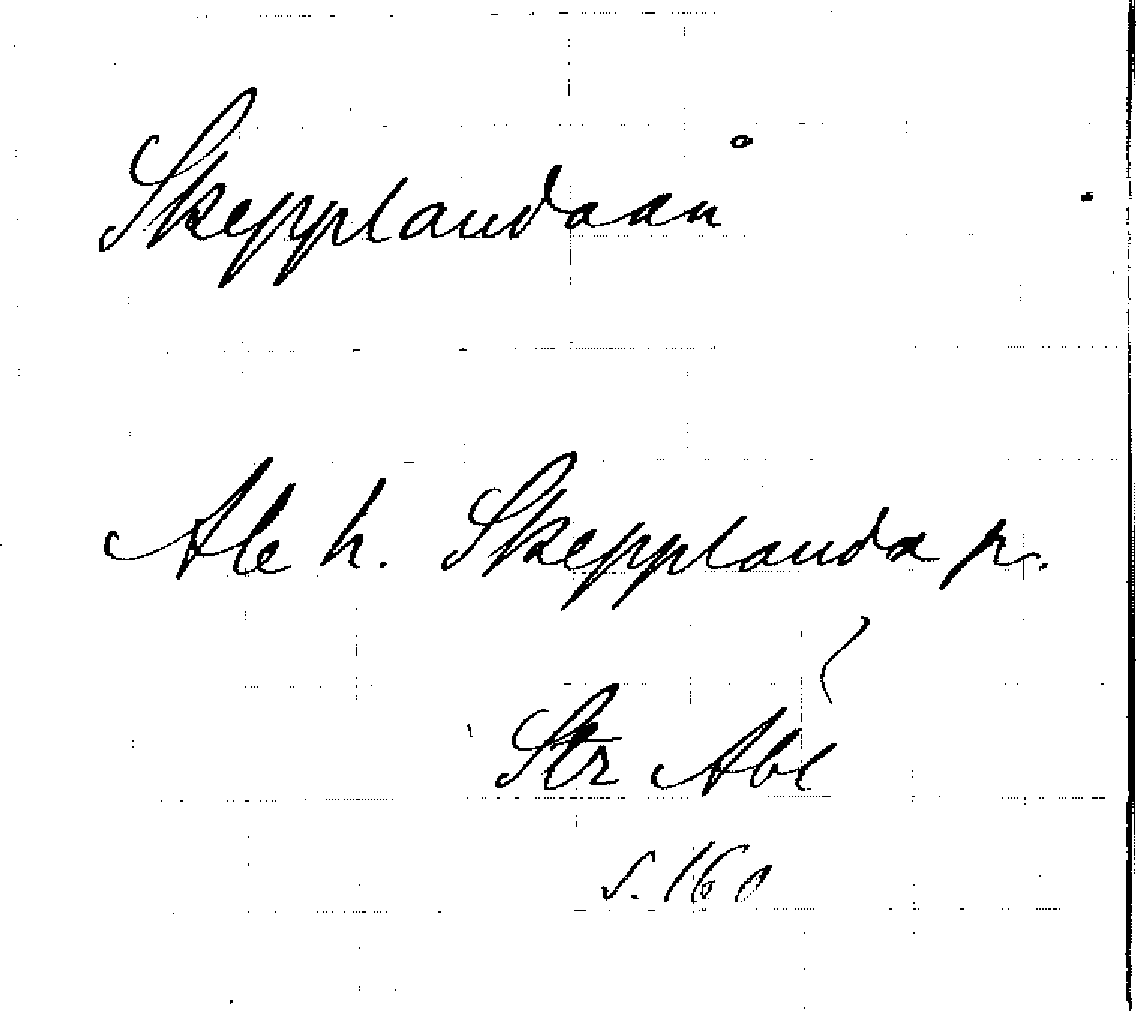 Skepplandaån
Ale h. Skepplanda p.
Str Ale
s. 160